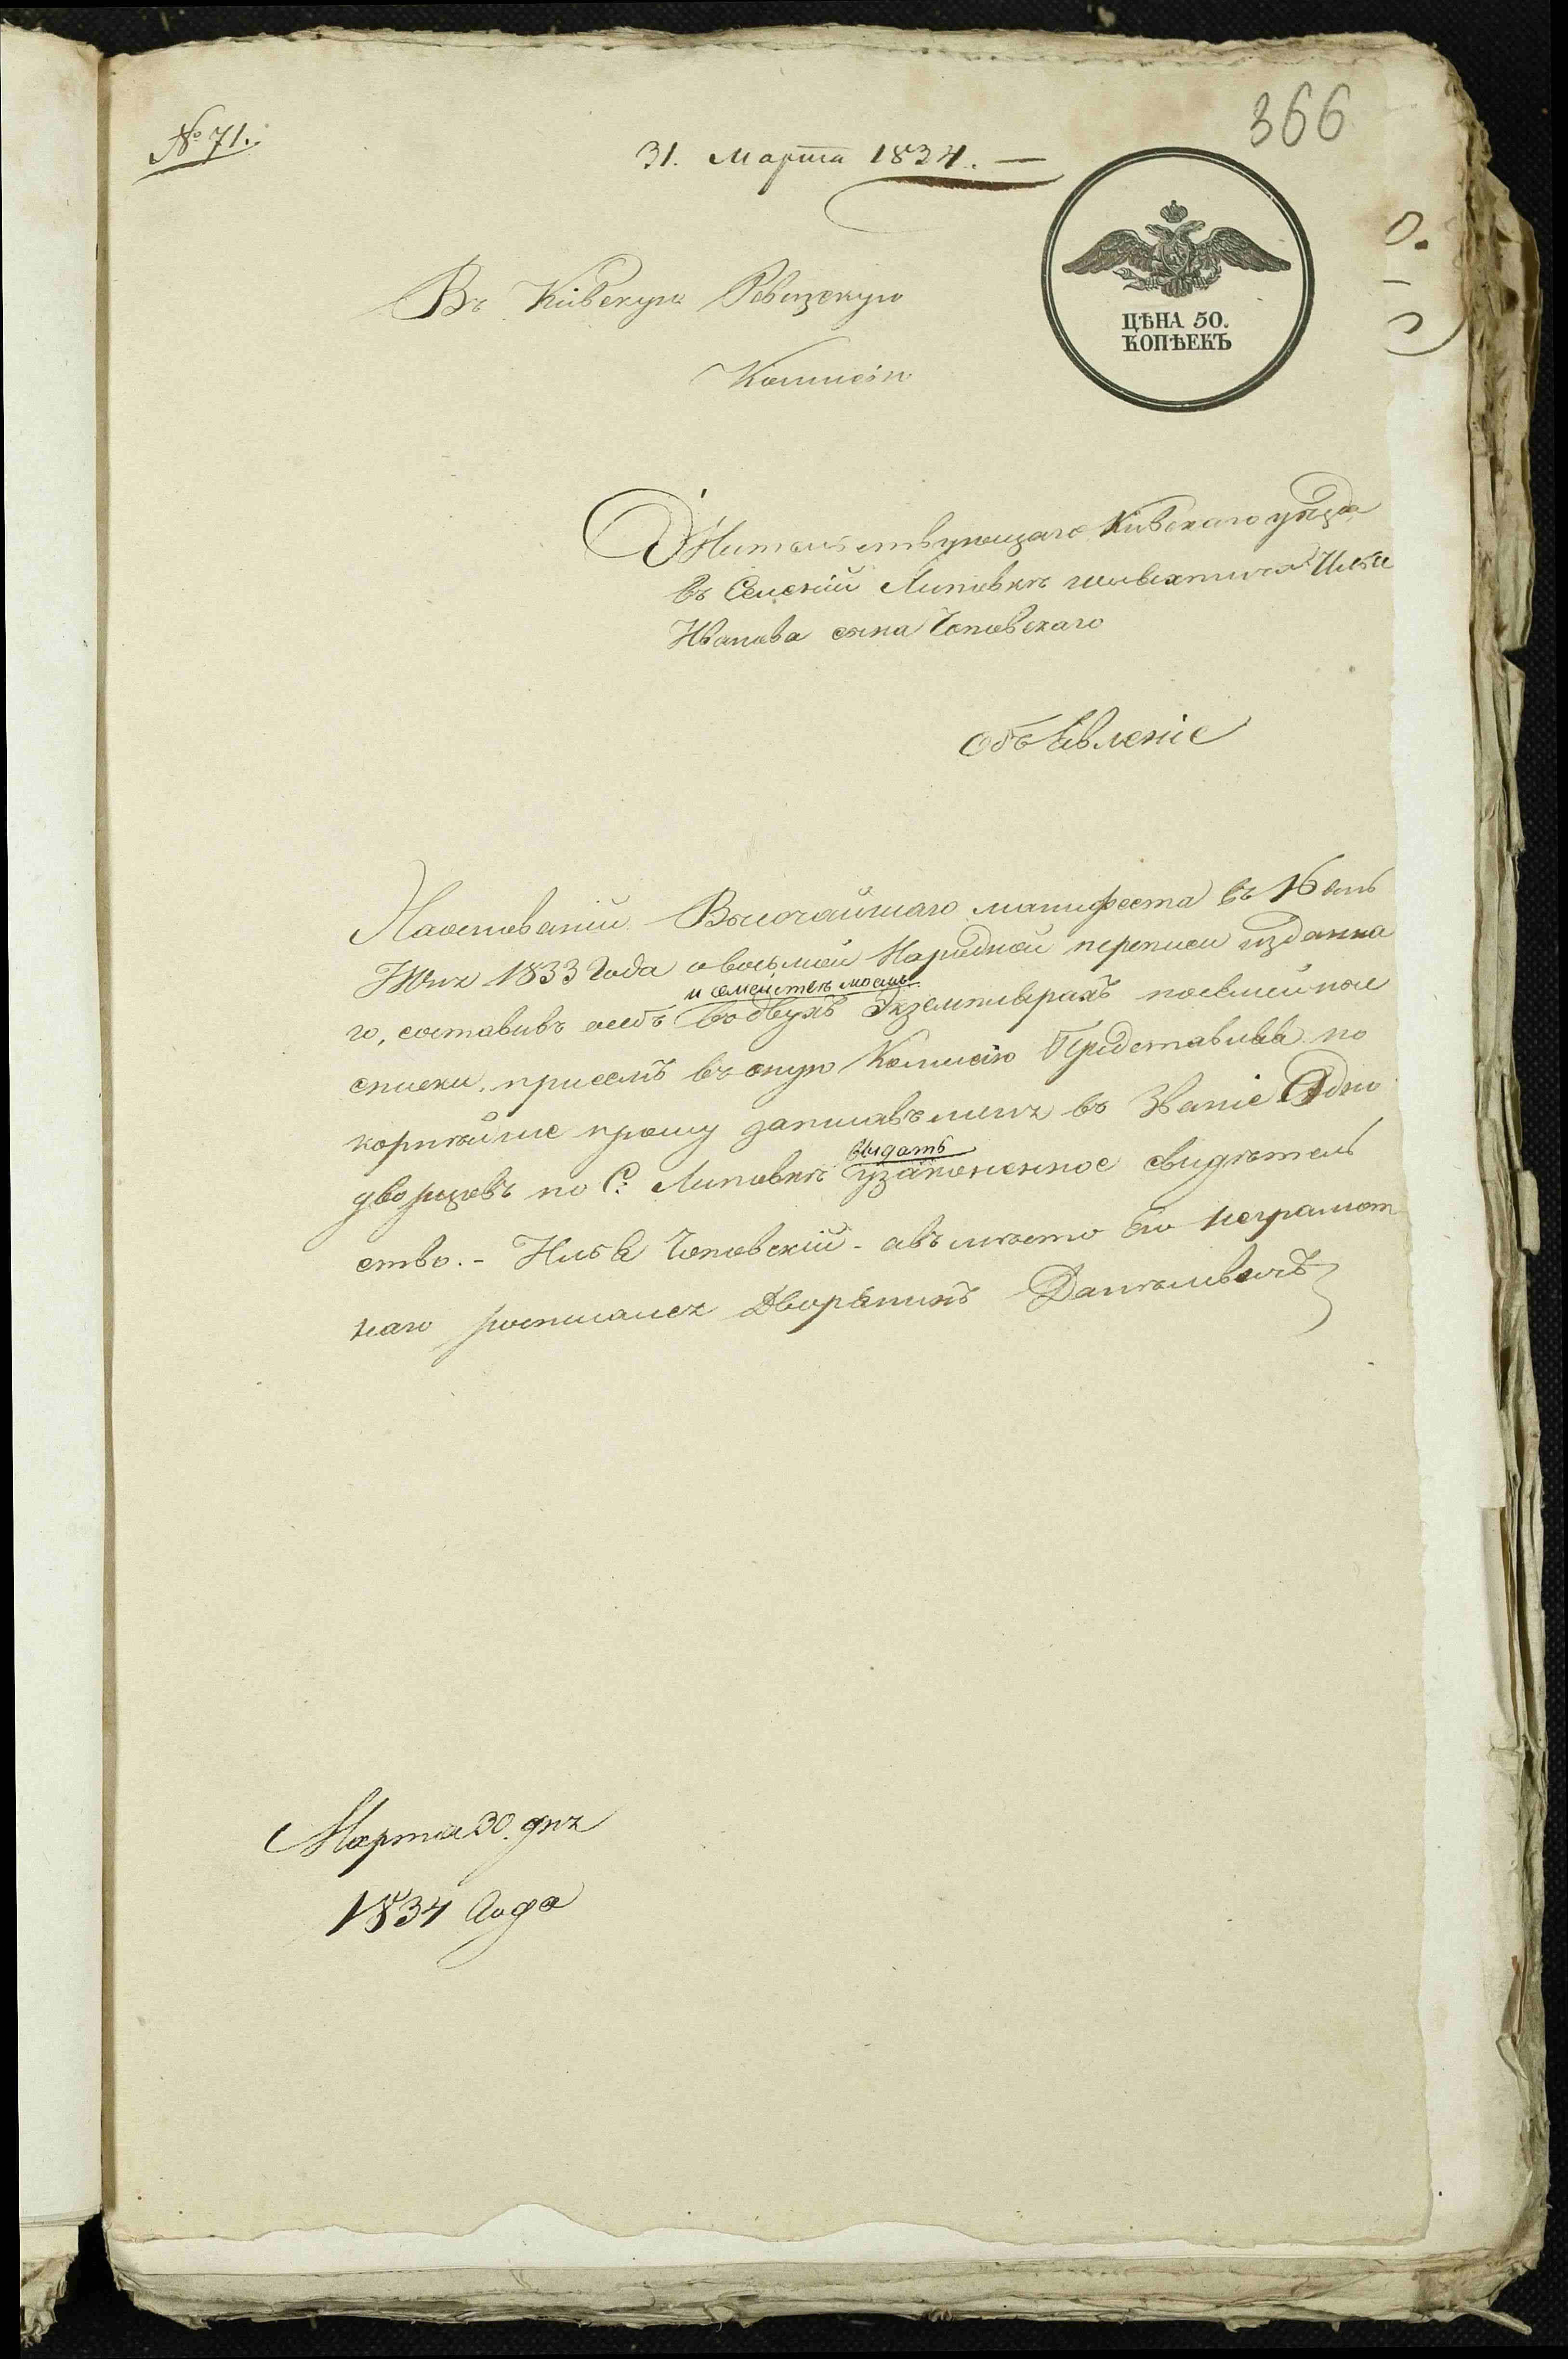 366
№ 71.
31. Марта 1834. —
ЦѢНА 50.
КОПѢЕКЪ
Въ Кіевскую Ревизскую
Комисію
Жительствующаго Кіевскаго уѣзда
въ Селеніи Липовкѣ шляхтича Ильи
Иванова сына Чоповскаго
Объявленіе
Наоснованіи Высочайшаго манифеста въ 16 день
Юня 1833 Года о восьмой Народной переписи изданна
и семействѣ моемъ
го, составивъ осебѣ въ двухъ Экземплярахъ посемейные
списки, присемъ въ оную Комисію Представляя по
корнѣйше прошу записавъ меня въ Званіе Одно
выдать
дворцевъ по С: Липовкѣ узаконенное свидѣтель
ство. - Илья Чоповскій - авъмѣсто его неграмот
наго росписался Дворянинъ
Марта 30. дня
1834 Года